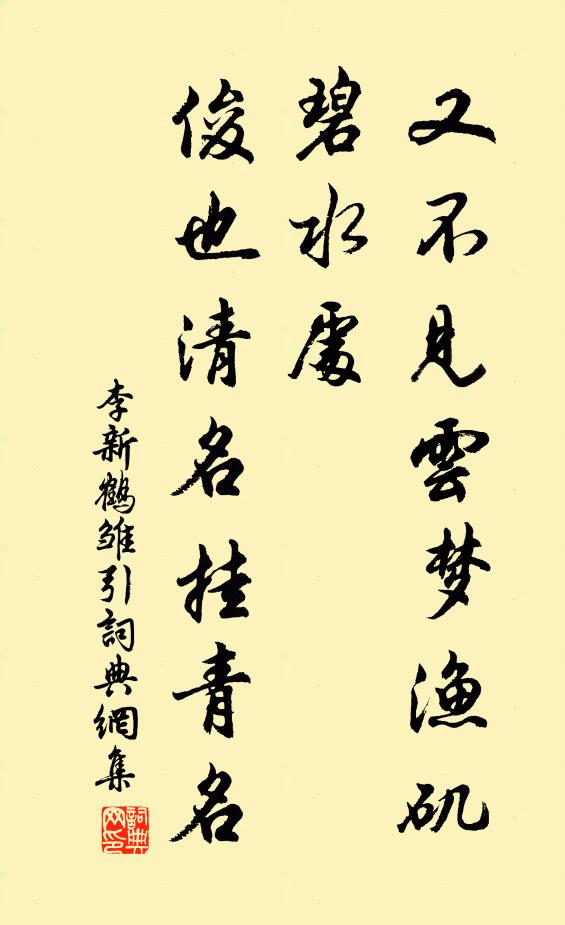 又不見雲梦漁矶
碧水處
俊也清名挂青名
李新鶴雏引詞典網集
詞典網印